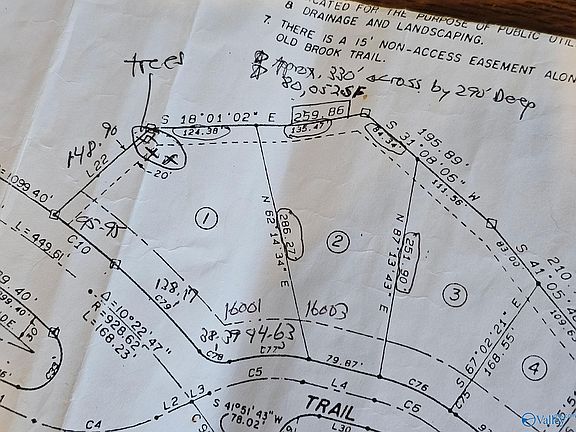 ICATED FOR THE PURPOSE OF PUBLIC UTIL
& DRAINAGE AND LANDSCAPING.
7. THERE IS A 15' NON-ACCESS EASEMENT ALON
OLD BROOK TRAIL.
trees
Approx. 330' across by 290' Deep
80,052 SF
S 18°01'02" E
259.86
124.38'
135.47'
84.34'
195.89'
S 31°08'05" W
111.56'
90
148'
L22
20'
1099.40'
195.95
L=449.61'
C10
1
N 62°14'34" E
286.27'
2
N 87°13'43" E
251.90'
83.00'
3
210.
S 41°05'4
109.6
S 67°02'21" E
168.55
4
128.17
C79
16001
16003
38.37
94.63
C78
C77
79.87'
C76
C75
Δ=10°22'47"
R=928.62'
L=168.23'
C5
L4
C6
L3
L2
C4
S 41°51'43" W
78.02'
TRAIL
L30
Valley